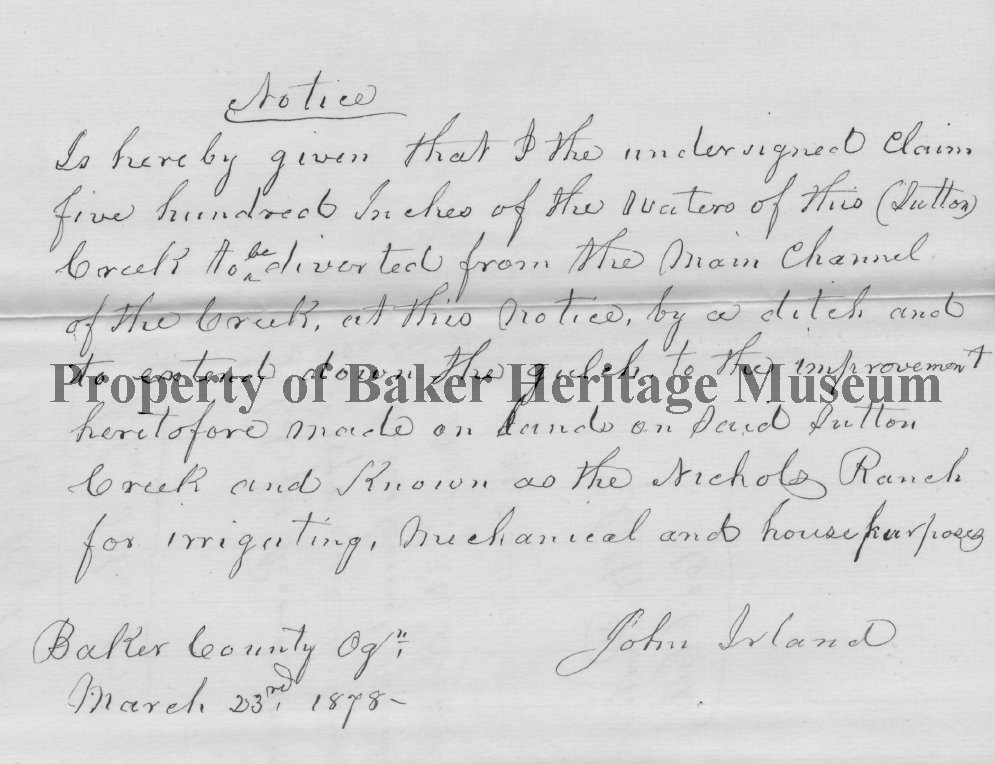 Notice
Is hereby given that I the undersigned Claim
five hundred Inches of the Waters of this (Sutton)
Creek to be diverted from the Main Channel
of the Creek, at this Notice, by a ditch and
to extend down the gulch to the improvement
Property of Baker Heritage Museum
heretofore made on Land on Said Sutton
Creek and Known as the Nichols Ranch
for irrigating, Mechanical and house purposes
Baker County Ogn,
John Irland
March 23rd, 1878-